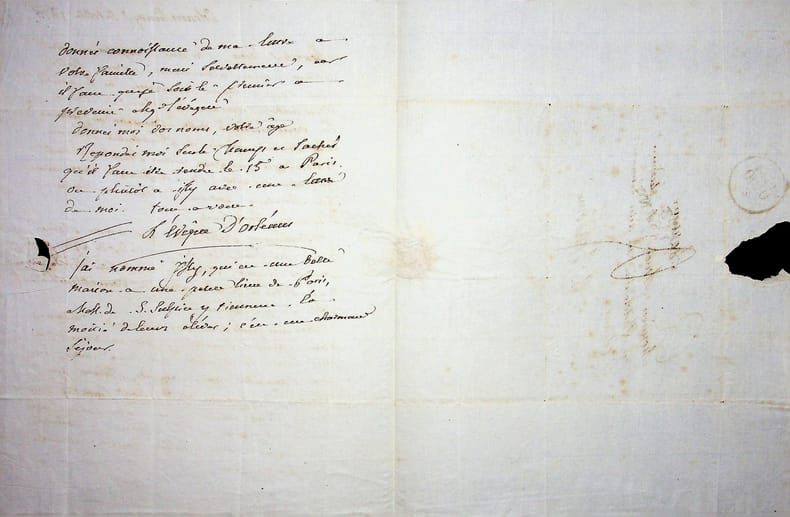 donnés connoissance de ma lettre a
votre famille, mais secretement, car
il faut que je sois le premier a
prevenir Mgr l'évêque
donnés moi vos noms, votre âge
Repondés moi sur le champs et sachés
qu'il faut être rendu le 15 a Paris.
ou plutôt a Issy avec une lettre
de moi. tout a vous
L'évêque D'orléans
j'ai nommé Issy, qui est une belle
maison a une petite lieue de Paris,
MM. de S. Sulpice y tiennent la
moitié de leurs élèves; c'est un charmant
séjour.